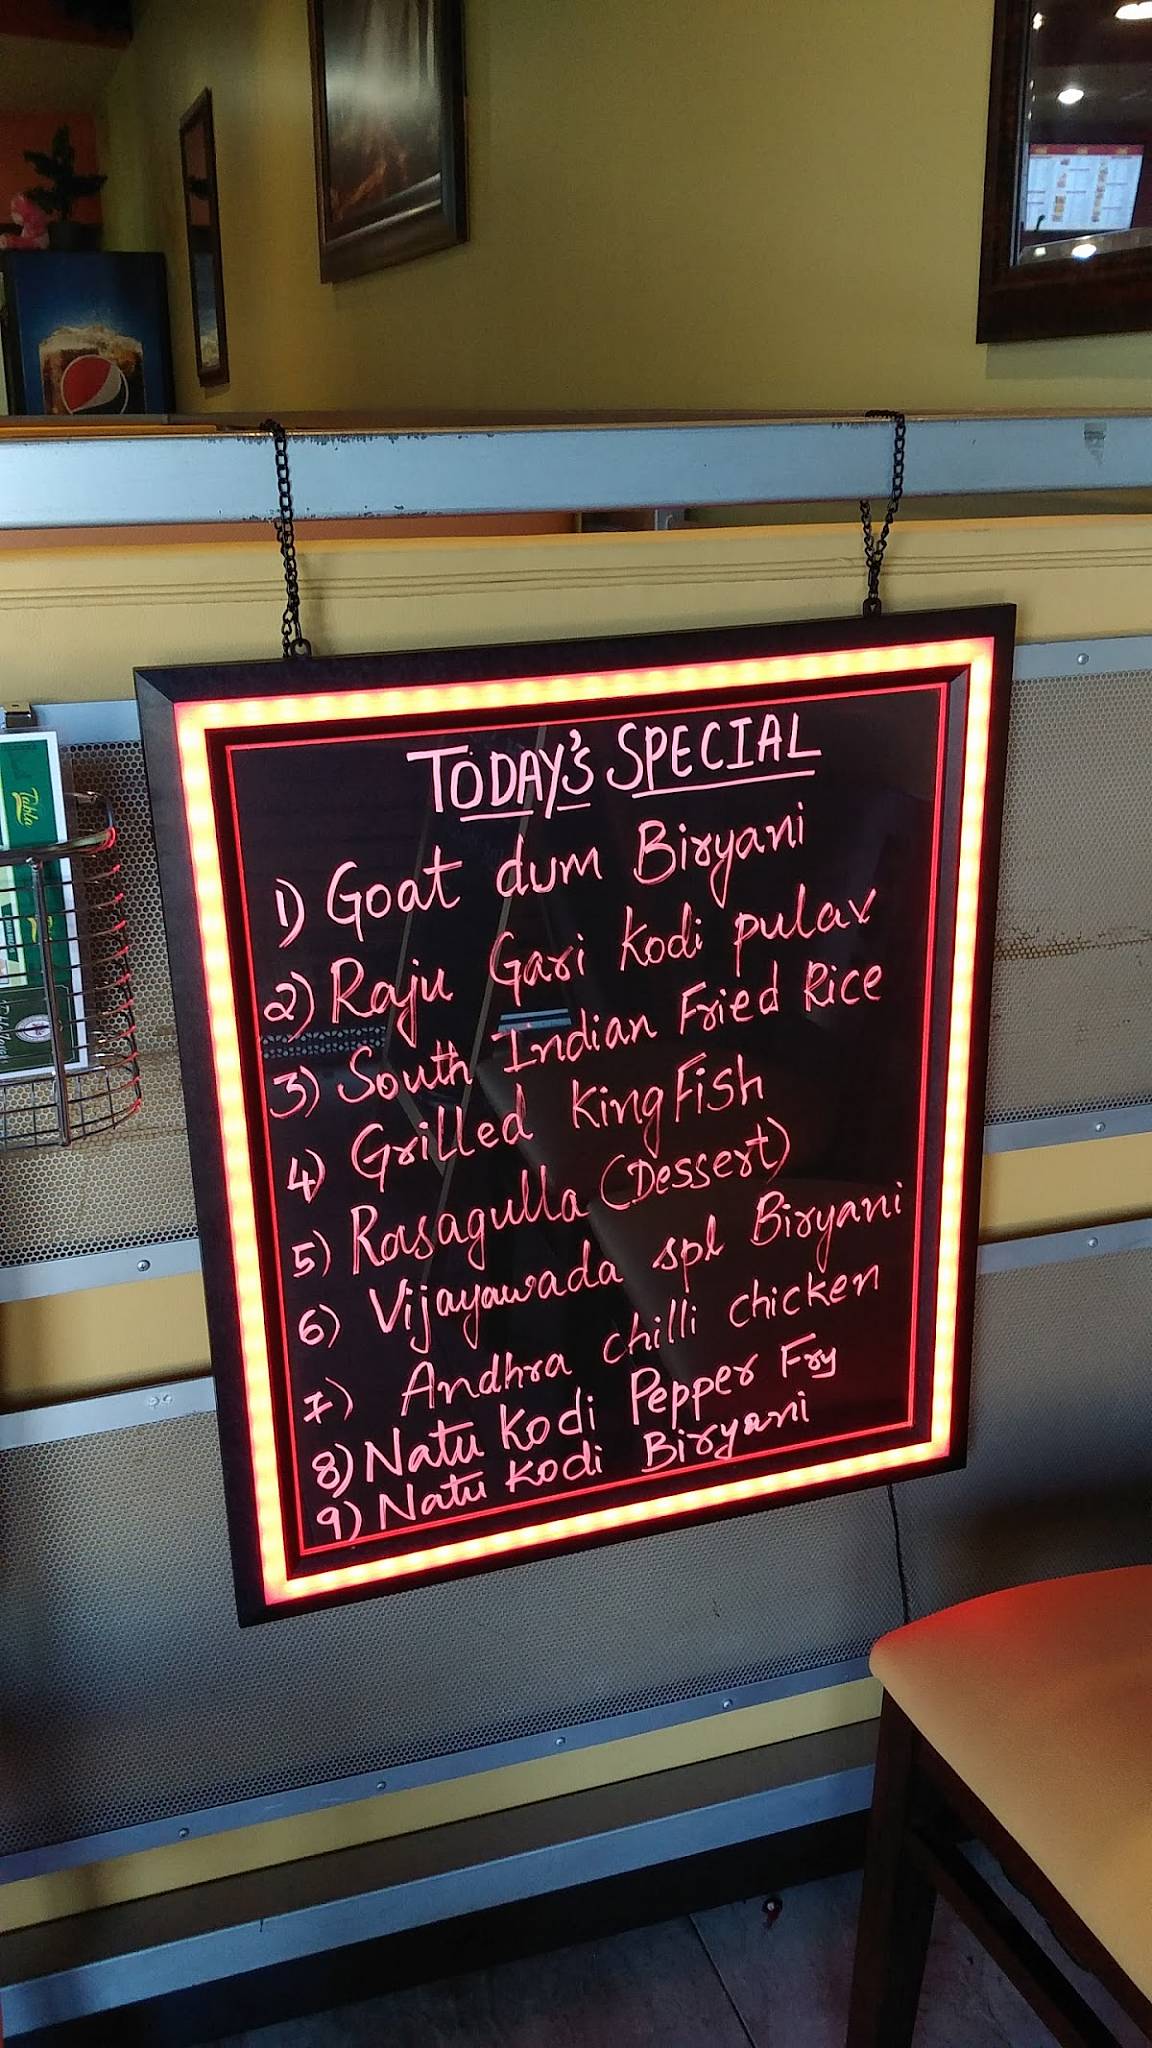 TODAY'S SPECIAL
1) Goat dum Biryani
2) Raju Gari Kodi pulav
3) South Indian Fried Rice
4) Grilled King Fish
5) Rasagulla (Dessert)
6) Vijayawada spl Biryani
7) Andhra chilli chicken
8) Natu Kodi Pepper Fry
9) Natu Kodi Biryani
Tabla